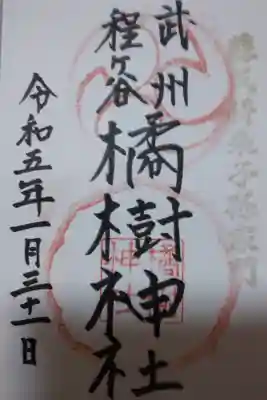 武州
程ヶ谷
橘樹神社
令和五年一月三十一日